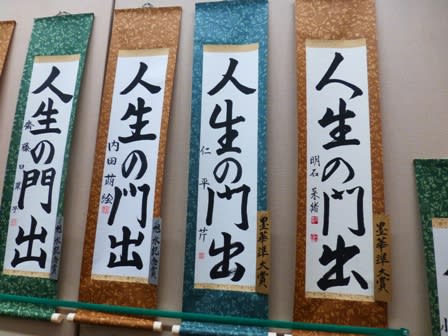 人生の門出
明石 采緒
墨華準大賞
人生の門出
仁平 芹
墨華準大賞
人生の門出
内田 蒔絵
人生の門出
齋藤